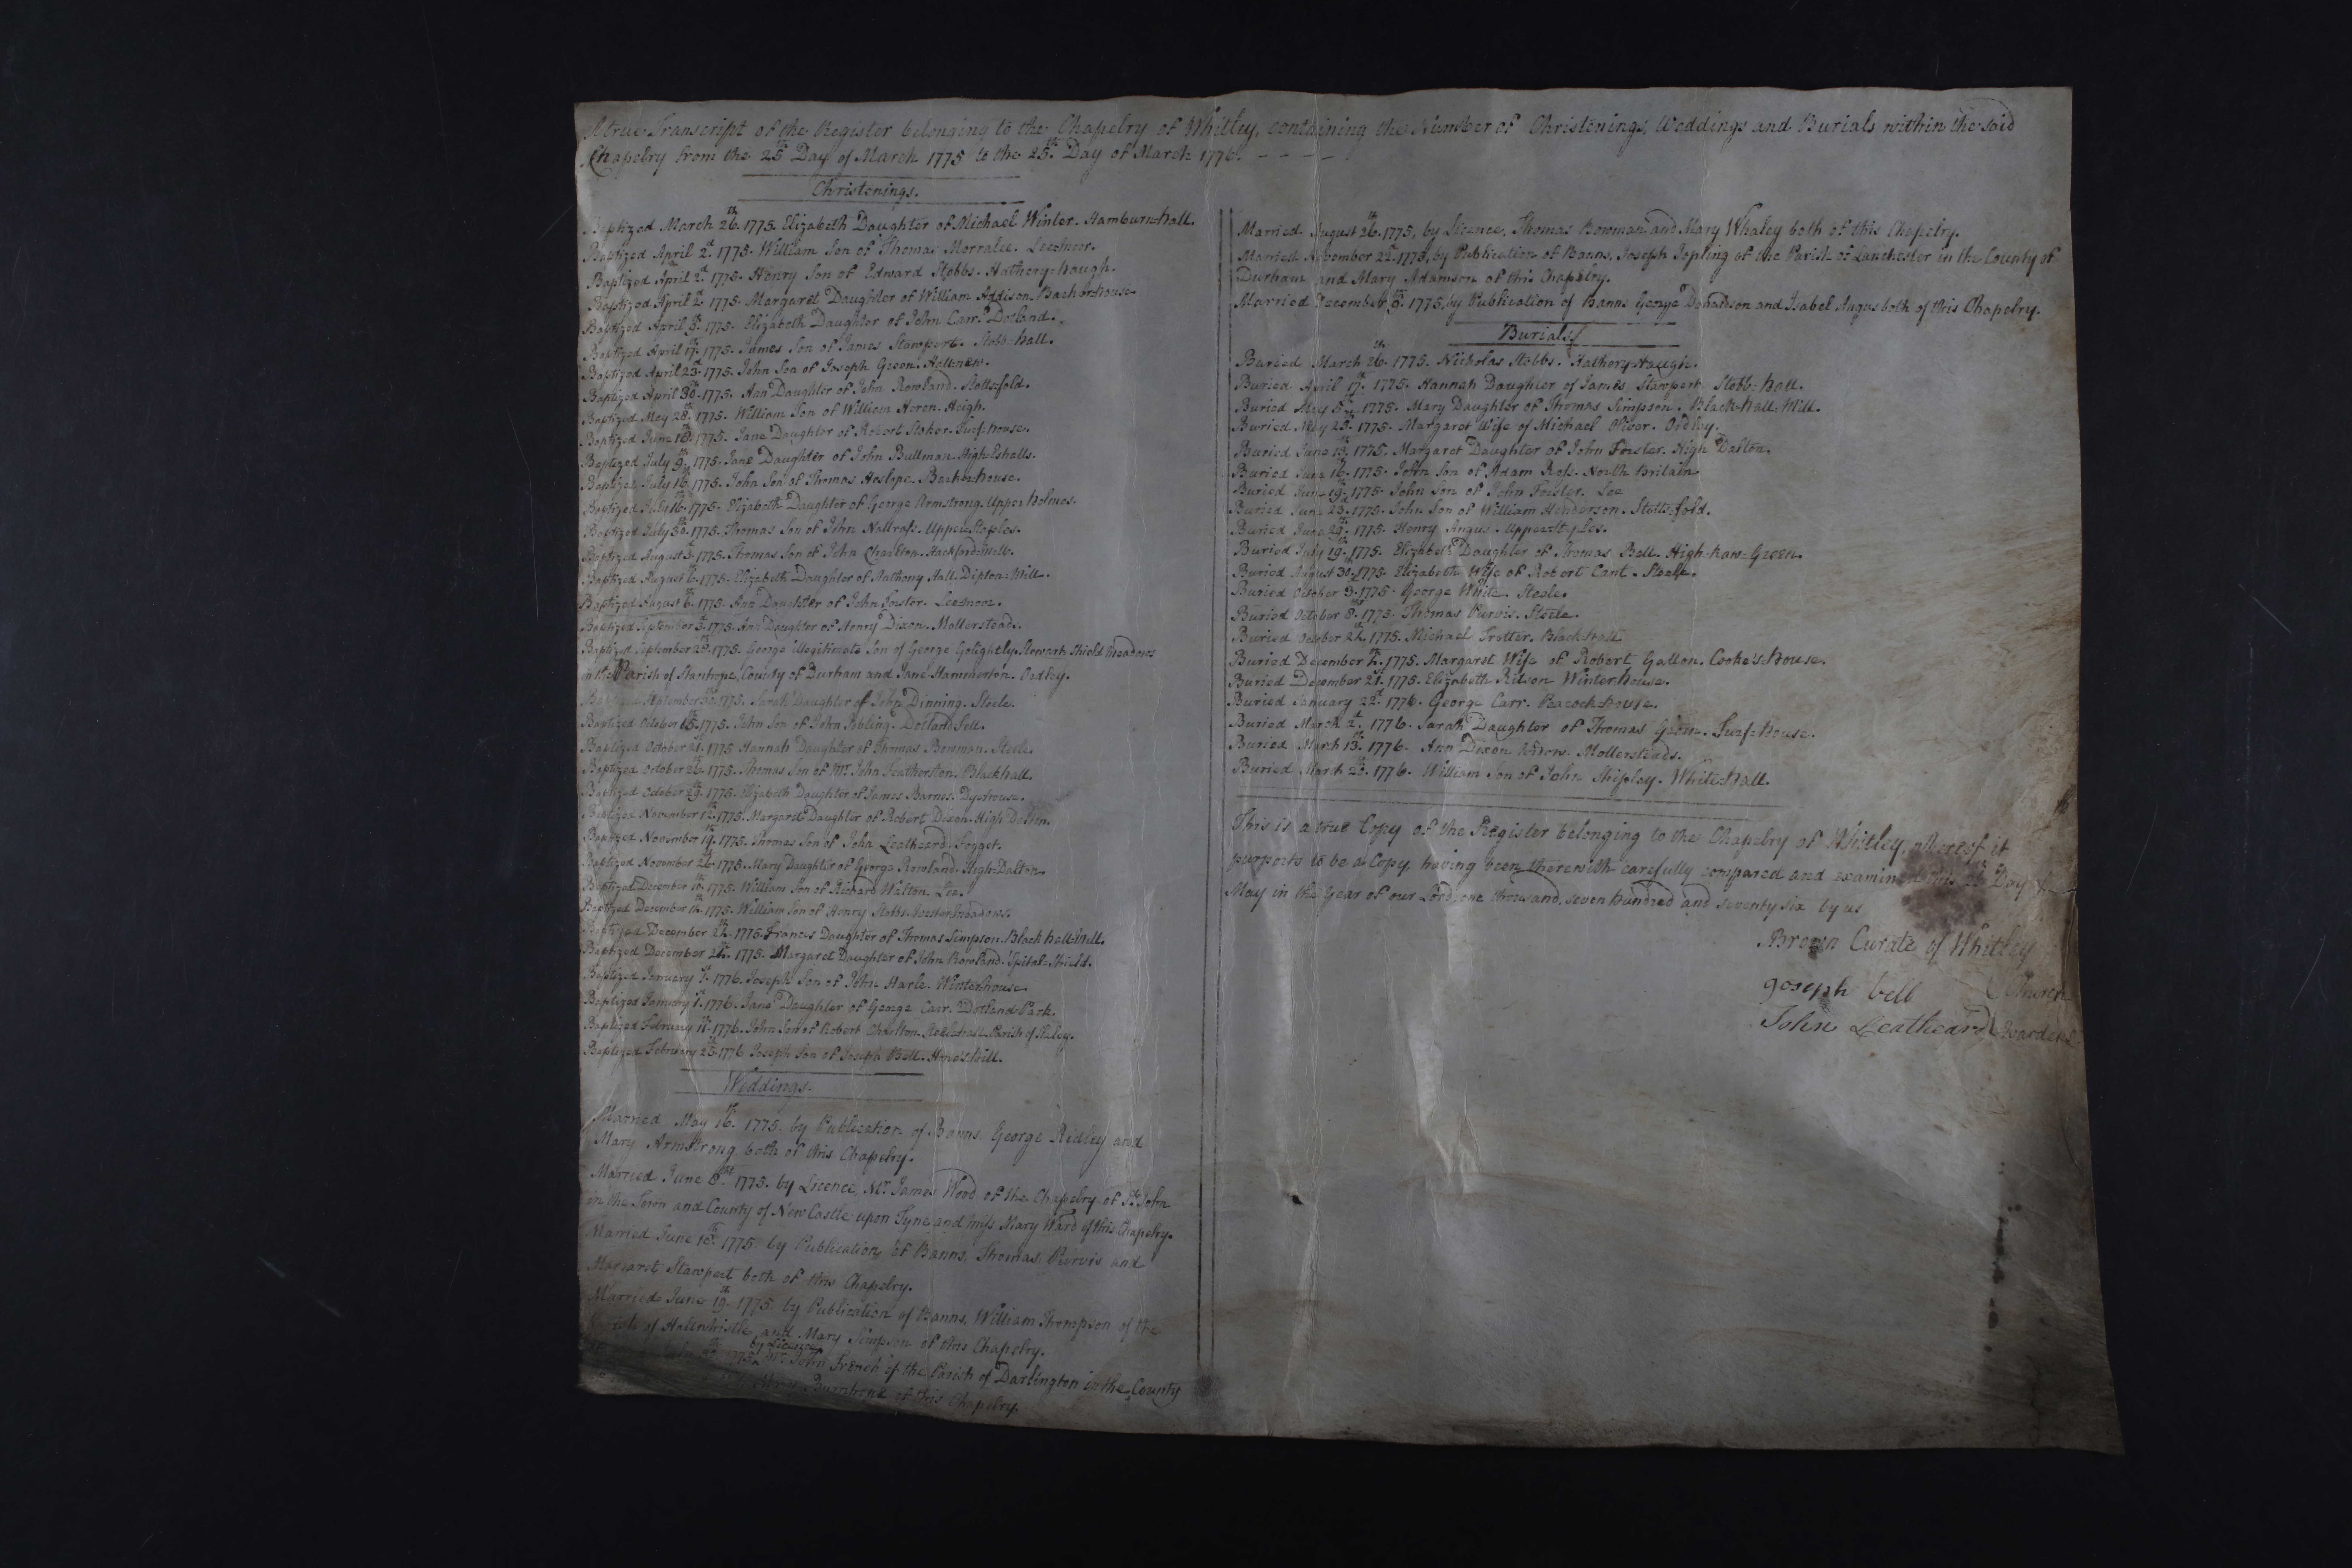 A true Transcript of the Register belonging to the Chapelry of Whitley, containing the Number of Christenings, Weddings and Burials within the said
Chapelry from the 25th Day of March 1775 to the 25th Day of March 1776.
Christenings.
Baptized March 26th 1775. Elizabeth Daughter of Michael Winter. Hamburn-hall.
Baptized April 2d 1775. William Son of Thomas Morralee. Leesmoor.
Baptized April 2d 1775. Henry Son of Edward Stobbs. Hathery-haugh.
Baptized April 2d 1775. Margaret Daughter of William Addison. Backerhouse.
Baptized April 9th 1775. Elizabeth Daughter of John Carr. Dotland.
Baptized April 17th 1775. James Son of James Stawpert. Stobb-hall.
Baptized April 23d 1775. John Son of Joseph Green.
Baptized April 30th 1775. Ann Daughter of John Rowland. Stotts-fold.
Baptized May 28th 1775. William Son of William Heron. Steigh.
Baptized June 18th 1775. Jane Daughter of Robert Stoker. Turf-house.
Baptized July 9th 1775. Jane Daughter of John Bullman. High-Eshells.
Baptized July 16th 1775. John Son of Thomas Heslope. Backerhouse.
Baptized July 16th 1775. Elizabeth Daughter of George Armstrong. Upper holmes.
Baptized July 30th 1775. Thomas Son of John Nattrass. Upper-Staples.
Baptized August 3d 1775. Thomas Son of John Charlton. Hackford-Mill.
Baptized August 6th 1775. Elizabeth Daughter of Anthony Hall. Dipton-Mill.
Baptized August 6th 1775. Ann Daughter of John Forster. Leesmoor.
Baptized September 3d 1775. Ann Daughter of Henry Dixon. Mollersteads.
Baptized September 1775. George illegitimate Son of George Golightly. Shield meadows
in the Parish of Stanhope, County of Durham and Jane Hammerton. Ordley.
Baptized September 1775. Sarah Daughter of John Dinning. Steele.
Baptized October 15th 1775. John Son of John Robling. Dotland Fell.
Baptized October 21st 1775 Hannah Daughter of Thomas Bowman. Steele.
Baptized October 26th 1775. Thomas Son of Mr. John Featherston. Blackhall.
Baptized October 29th 1775. Elizabeth Daughter of James Barnes. Dyehouse.
Baptized November 12th 1775. Margaret Daughter of Robert Dixon. High Dalton.
Baptized November 19th 1775. Thomas Son of John Leatheard. Fogget.
Baptized November 26th 1775. Mary Daughter of George Rowland. High-Dalton.
Baptized December 10th 1775. William Son of Richard Walton. Lee.
Baptized December 1775. William Son of Henry Stobbs.
Baptized December 1775. Frances Daughter of Thomas Simpson. Black hall-Mill.
Baptized December 1775. Margaret Daughter of John Rowland. Spital-Shield.
Baptized January 1776. Joseph Son of John Harle. Winterhouse.
Baptized January 1776. Jane Daughter of George Carr. Dotland-Park.
Baptized February 11th 1776. John Son of Robert Charlton. Parish of Slaley.
Baptized February 25th 1776 Joseph Son of Joseph Bell.
Weddings.
Married May 16th 1775. by Publication of Banns George Ridley and
Mary Armstrong both of this Chapelry.
Married June 8th 1775. by Licence, Mr. James Wood of the Chapelry of St. John
in the Town and County of New Castle upon Tyne and miss Mary Ward of this Chapelry.
Married June 18th 1775 by Publication of Banns, Thomas Purvis and
Margaret Stawpert both of this Chapelry.
Married June 19th 1775 by Publication of Banns, William Thompson of the
of Haltwhistle and Mary Simpson of this Chapelry.
by Licence
1775 Mr. John French of the Parish of Darlington in the County
of this Chapelry.
Married August 26th 1775, by Licence, Thomas Bowman and Mary Whaley both of this Chapelry.
Married November 22d 1775, by Publication of Banns, Joseph Jopling of the Parish of Lanchester in the County of
Durham and Mary Adamson of this Chapelry.
Married December 9th 1775, by Publication of Banns George Donaldson and Isabel Angus both of this Chapelry.
Burials
Buried March 26th 1775. Nicholas Stobbs. Hathery-Haugh.
Buried April 17th 1775. Hannah Daughter of James Stawpert Stobb-hall.
Buried May 5th 1775. Mary Daughter of Thomas Simpson. Black-hall-Mill.
Buried May 1775. Margaret Wife of Michael Oliver. Ordley.
Buried June 1775. Margaret Daughter of John Forster. High Dalton.
Buried June 16th 1775. John Son of Adam North Britain.
Buried June 19th 1775. John Son of John Forster. Lee
Buried June 23d 1775. John Son of William Henderson. Stotts-fold.
Buried June 29th 1775. Henry Angus.
Buried July 19th 1775. Elizabeth Daughter of Thomas Bell. High-haw-Green.
Buried August 30th 1775. Elizabeth Wife of Robert Cant. Steele.
Buried October 1775. George White. Steele.
Buried October 8th 1775. Thomas Purvis. Steele.
Buried October 1775. Michael Trotter. Blackhall
Buried December 1775. Margaret Wife of Robert Gallon. Cooke's-House.
Buried December 21st 1775. Elizabeth Ritson Winter-house.
Buried January 22d 1776. George Carr. Peacock-house.
Buried March 2d 1776. Sarah Daughter of Thomas Green. Turf-House.
Buried March 13th 1776. Ann Dixon Widow. Mollersteads.
Buried March 1776. William Son of John Shipley. White-hall.
This is a true Copy of the Register belonging to the Chapelry of Whitley, whereof it
purports to be a Copy, having been therewith carefully compared and examined this Day of
May in the Year of our Lord, one thousand, seven hundred and seventy six by us
Brown Curate of Whitley
Joseph bell Church
John Leatheard Wardens